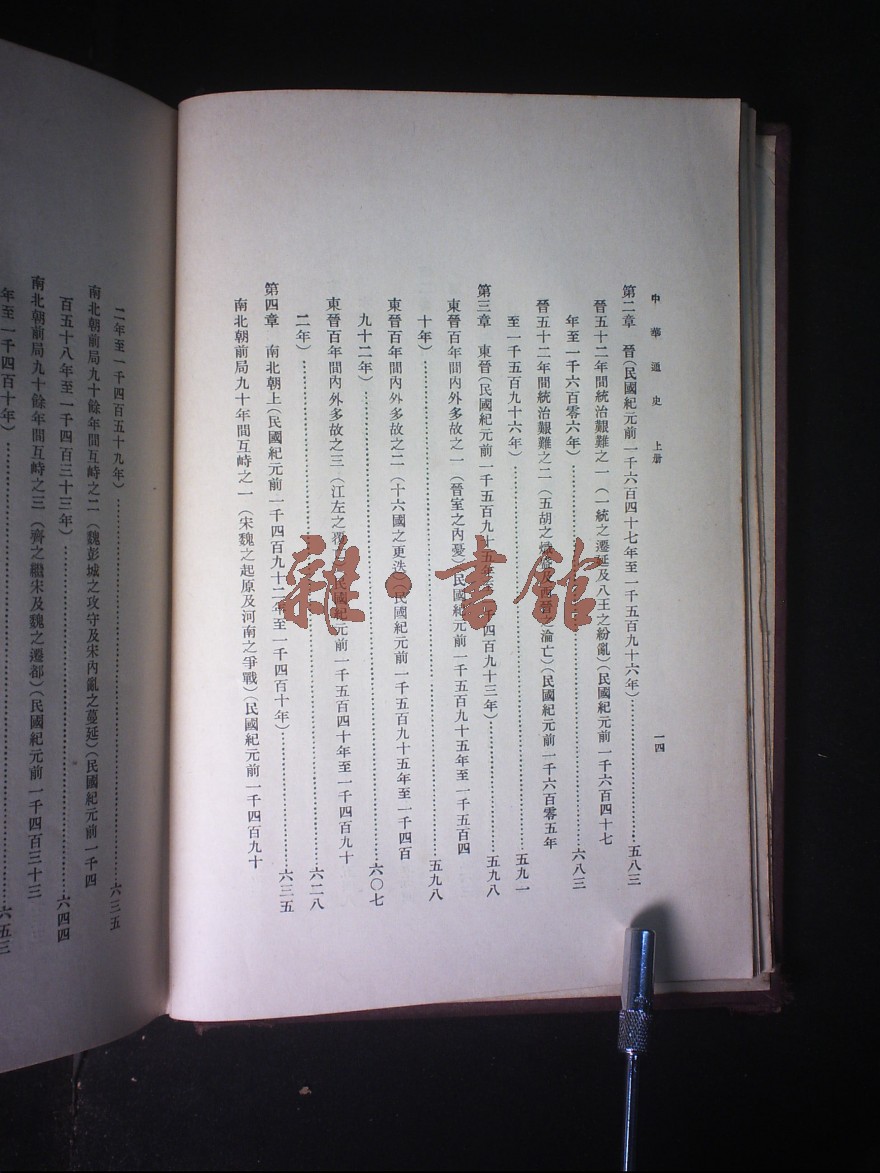 中華通史 上册
一四
第二章 晉(民國紀元前一千六百四十七年至一千五百九十六年)……五八三
晉五十二年間統治艱難之一(一統之遷延及八王之紛亂)(民國紀元前一千六百四十七
年至一千六百零六年)……六八三
晉五十二年間統治艱難之二(五胡之熾盛及西晉之淪亡)(民國紀元前一千六百零五年
至一千五百九十六年)……五九一
第三章 東晉(民國紀元前一千五百九十五年至一千四百九十三年)……五九八
東晉百年間內外多故之一(晉室之內憂)(民國紀元前一千五百九十五年至一千五百四
十年)……五九八
東晉百年間內外多故之二(十六國之更迭)(民國紀元前一千五百九十五年至一千四百
九十二年)……六〇七
東晉百年間內外多故之三(江左之)(民國紀元前一千五百四十年至一千四百九十
二年)……六二八
第四章 南北朝上(民國紀元前一千四百九十二年至一千四百十年)……六三五
南北朝前局九十年間互峙之一(宋魏之起原及河南之爭戰)(民國紀元前一千四百九十
二年至一千四百五十九年)……六三五
南北朝前局九十餘年間互峙之二(魏彭城之攻守及宋內亂之蔓延)(民國紀元前一千四
百五十八年至一千四百三十三年)……六四四
南北朝前局九十餘年間互峙之三(齊之繼宋及魏之遷都)(民國紀元前一千四百三十三
年至一千四百十年)……六五三
雜·書館